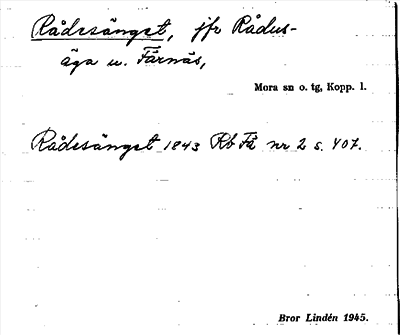 Rådesänget, jfr Rådus-
äga u. Färnäs,
Mora sn o. tg, Kopp. l.
Rådesänget 1843 Rb Fä nr 2 s. 407.
Bror Lindén 1945.